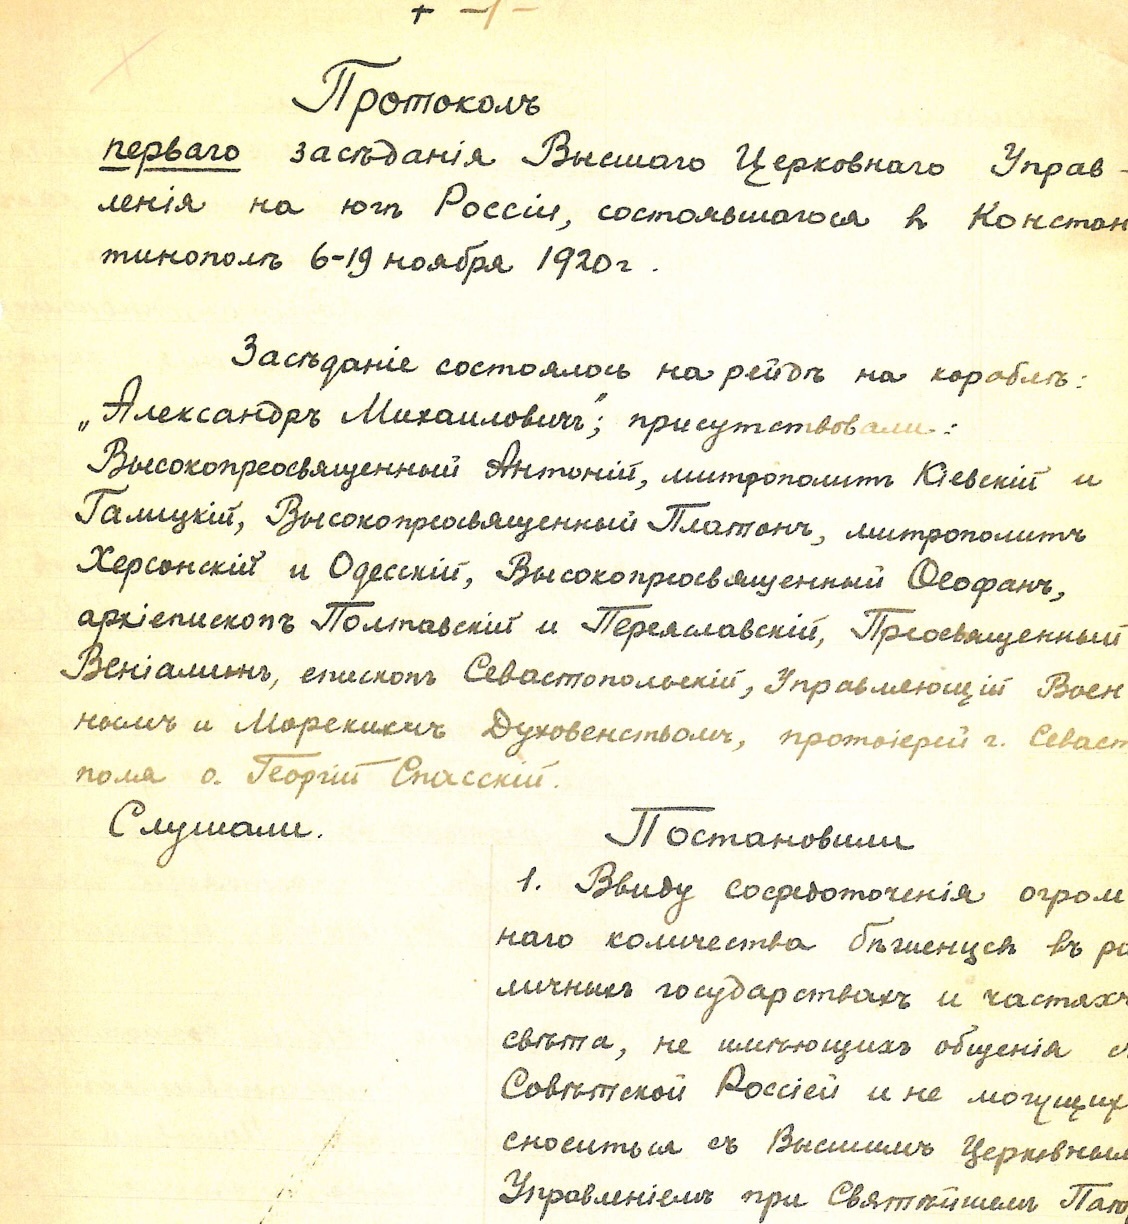 + -1-
Протоколъ
перваго засѣданія Высшаго Церковнаго Управ-
ленія на югѣ Россіи, состоявшагося в Констан
тинополѣ 6-19 ноября 1920 г.
Засѣданіе состоялось на рейдѣ на кораблѣ:
„Александръ Михаиловичъ"; присутствовали:
Высокопреосвященный Антоній, митрополитъ Кіевскій и
Галицкій, Высокопреосвященный Платонъ, митрополитъ
Херсонскій и Одесскій, Высокопреосвященный Ѳеофанъ,
архіепископъ Полтавскій и Переяславскій, Преосвященный
Веніаминъ, епископъ Севастопольскій, Управляющій Воен
нымъ и Морскимъ Духовенствомъ, протоіерей г. Севаст
поля о. Георгій Спасскій.
Слушали. Постановили
1. Ввиду сосредоточенія огром
наго количества бѣженцевъ въ ра
личныхъ государствахъ и частяхъ
свѣта, не имѣющихъ общенія с
Совѣтской Россіей и не могущих
сноситься съ Высшимъ Церковным
Управленіемъ при Святѣйшемъ Пат